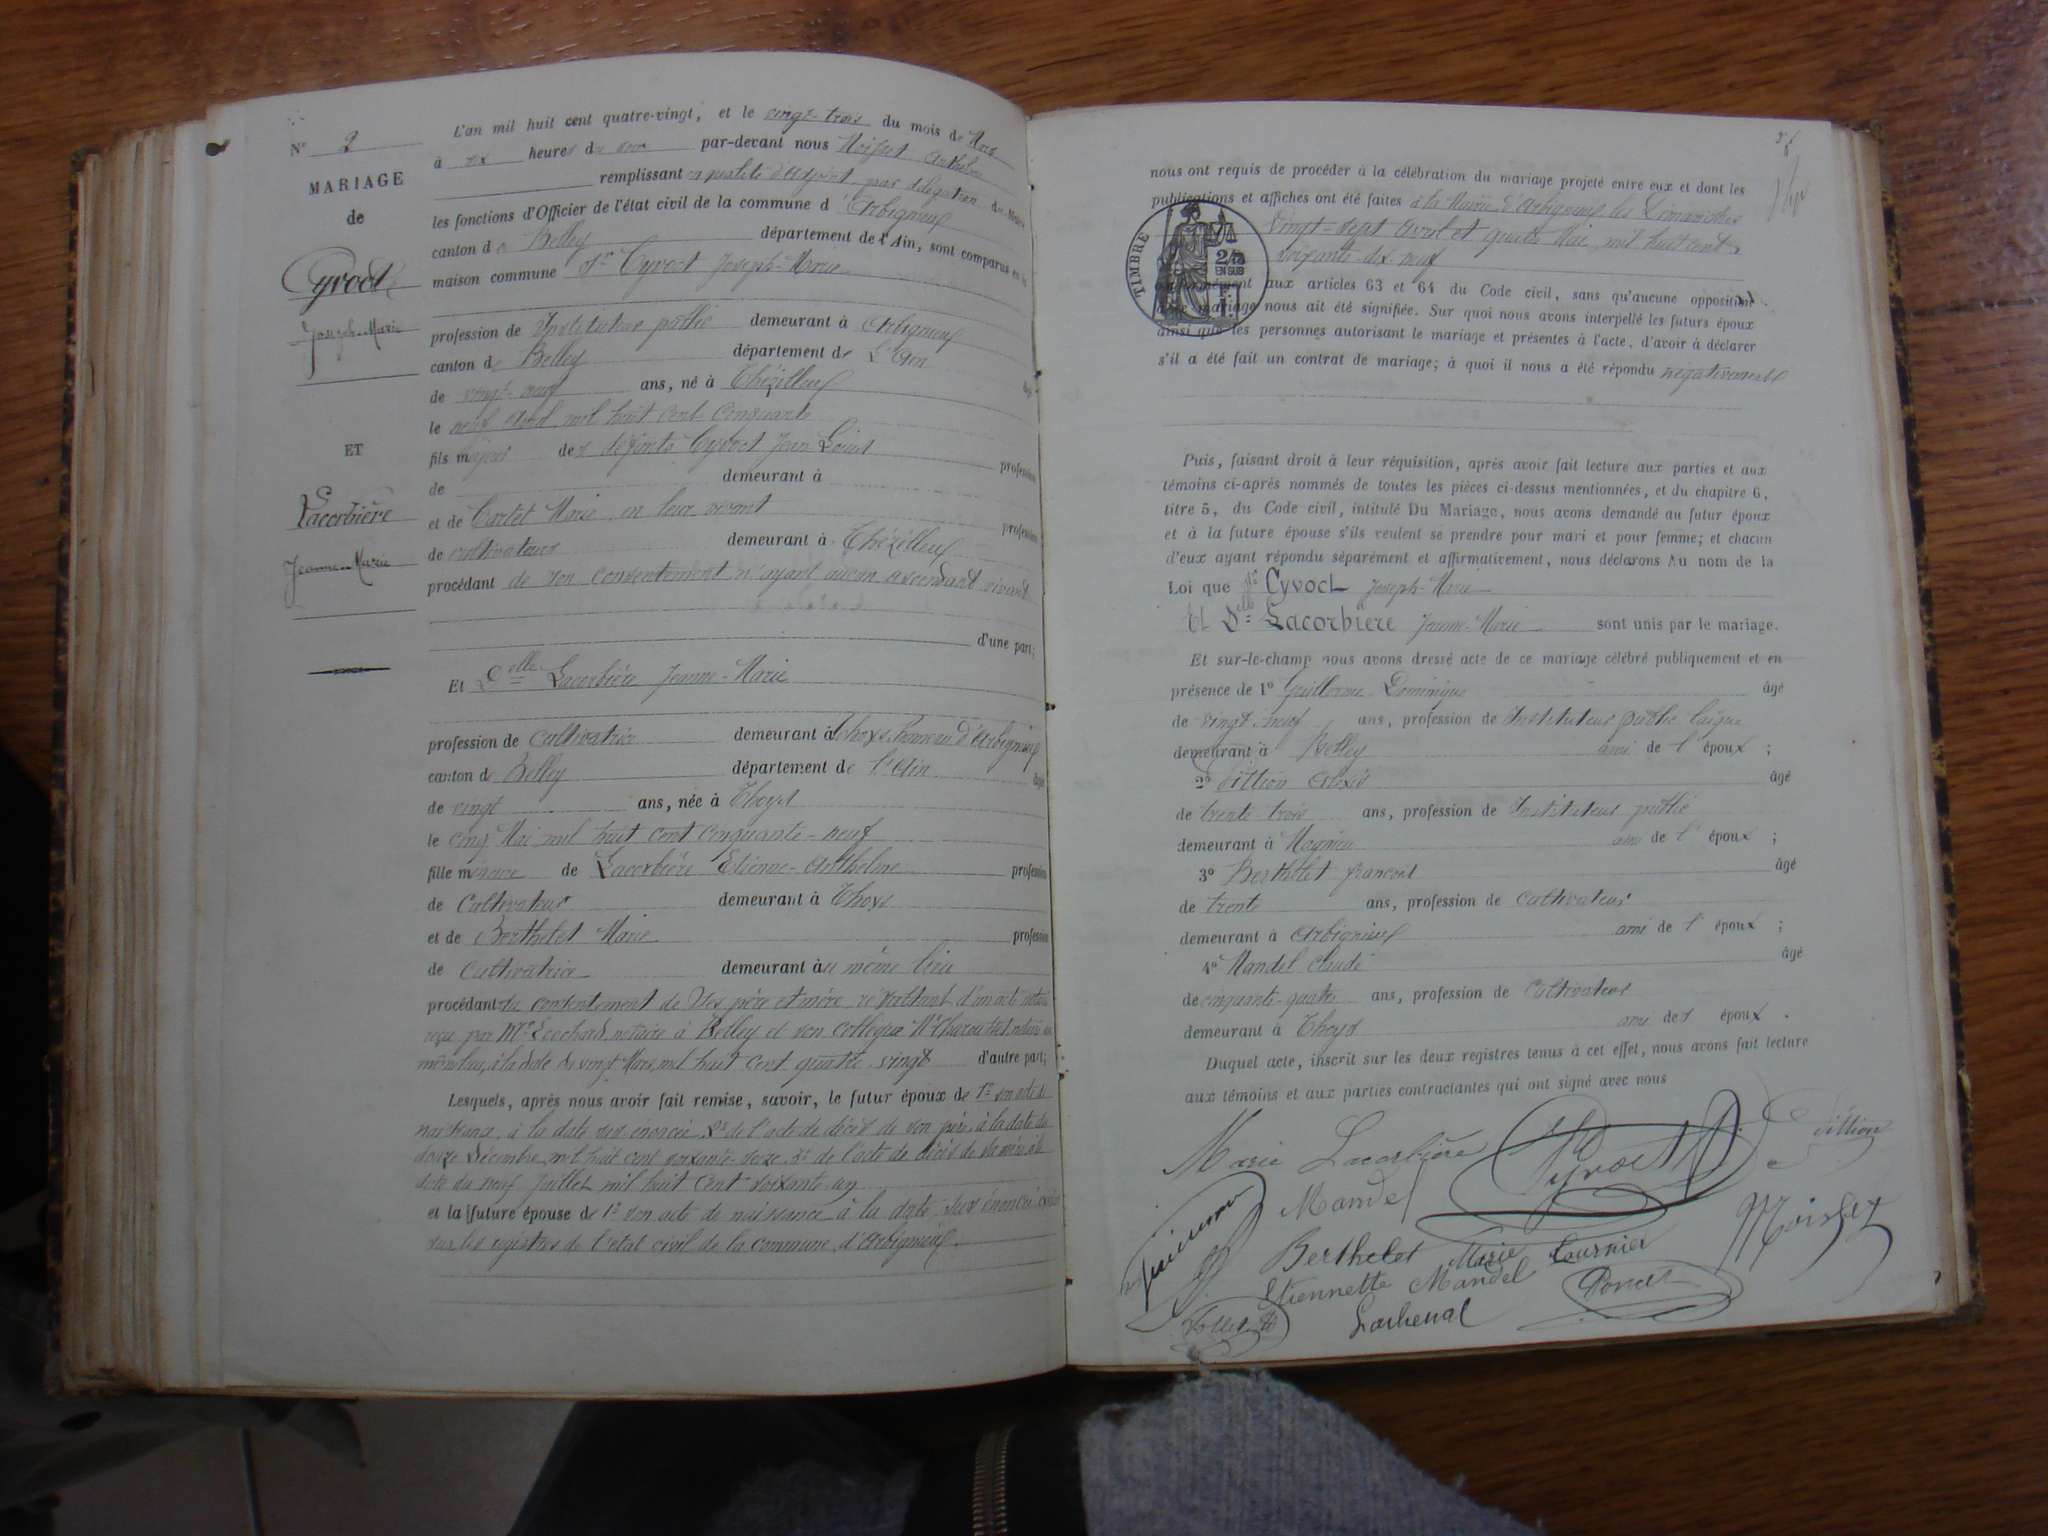 N° 2
MARIAGE
de
Cyvoct
Joseph-Marie
ET
Lacorbière
Jeanne-Marie
L'an mil huit cent quatre-vingt, et le vingt-trois du mois de Mars
à six heures du soir par-devant nous Moisset Anthelme
remplissant en qualité d'Adjoint par délégation du Maire
les fonctions d'Officier de l'état civil de la commune d'Arbignieu
canton de Belley département de l'Ain, sont comparus en la
maison commune Sr Cyvoct Joseph-Marie
profession de Instituteur public demeurant à Arbignieu
canton de Belley département de L'Ain âgé
de vingt-neuf ans, né à Chézilleu
le neuf Août mil huit cent cinquante
fils majeur des défunts Cyvoct Jean Louis profession
de demeurant à
et de Cartet Marie en leur vivant profession
de cultivateurs demeurant à Chézilleu
procédant de son consentement n'ayant aucun ascendant vivant
d'une part;
Et Delle Lacorbière Jeanne-Marie
profession de Cultivatrice demeurant à Thoys hameau d'Arbignieu
canton de Belley département de l'Ain âgé
de vingt ans, née à Thoys
le cinq Mai mil huit cent cinquante-neuf
fille mineure de Lacorbière Etienne-Anthelme profession
de Cultivateur demeurant à Thoys
et de Berthelet Marie profession
de Cultivatrice demeurant au même lieu
procédant du consentement de ses père et mère résultant d'un acte notarié
reçu par Me notaire à Belley et son collègue Me notaire au
même lieu, à la date du vingt Mars, mil huit cent quatre vingt d'autre part;
Lesquels, après nous avoir fait remise, savoir, le futur époux de 1° son acte de
naissance, à la date sus énoncée 2° de l'acte de décès de son père à la date du
douze Décembre mil huit cent soixante-seize, 3° de l'acte de décès de sa mère à la
date du neuf Juillet mil huit cent soixante un
et la future épouse de 1° son acte de naissance à la date sus énoncée
sur les registres de l'état civil de la commune d'Arbignieu.
nous ont requis de procéder à la célébration du mariage projeté entre eux et dont les
publications et affiches ont été faites à la Mairie d'Arbignieu les Dimanches
vingt-sept Avril et quatre Mai, mil huit cent
soixante-dix-neuf
TIMBRE
2/10
EN SUS
conformément aux articles 63 et 64 du Code civil, sans qu'aucune opposition
audit mariage nous ait été signifiée. Sur quoi nous avons interpellé les futurs époux
ainsi que les personnes autorisant le mariage et présentes à l'acte, d'avoir à déclarer
s'il a été fait un contrat de mariage; à quoi il nous a été répondu négativement
Puis, faisant droit à leur réquisition, après avoir fait lecture aux parties et aux
témoins ci-après nommés de toutes les pièces ci-dessus mentionnées, et du chapitre 6,
titre 5, du Code civil, intitulé Du Mariage, nous avons demandé au futur époux
et à la future épouse s'ils veulent se prendre pour mari et pour femme; et chacun
d'eux ayant répondu séparément et affirmativement, nous déclarons Au nom de la
Loi que Sr Cyvoct Joseph-Marie
Et Delle Lacorbière Jeanne-Marie sont unis par le mariage.
Et sur-le-champ nous avons dressé acte de ce mariage célébré publiquement et en
présence de 1° Guillerme Dominique âgé
de vingt neuf ans, profession de Instituteur public laïque
demeurant à Belley ami de l'époux ;
2° Dittion Alexis âgé
de trente-trois ans, profession de Instituteur public
demeurant à Magnieu ami de l'époux ;
3° Berthelet François âgé
de trente ans, profession de cultivateur
demeurant à Arbignieu ami de l'époux ;
4° Mandel Claude âgé
de cinquante-quatre ans, profession de Cultivateur
demeurant à Thoys ami des époux .
Duquel acte, inscrit sur les deux registres tenus à cet effet, nous avons fait lecture
aux témoins et aux parties contractantes qui ont signé avec nous
Marie Lacorbière Cyvoct Dittion
Guillerme Mandel Moisset
Berthelet Marie Tournier
Etiennette Mandel Poncet
Lacheval